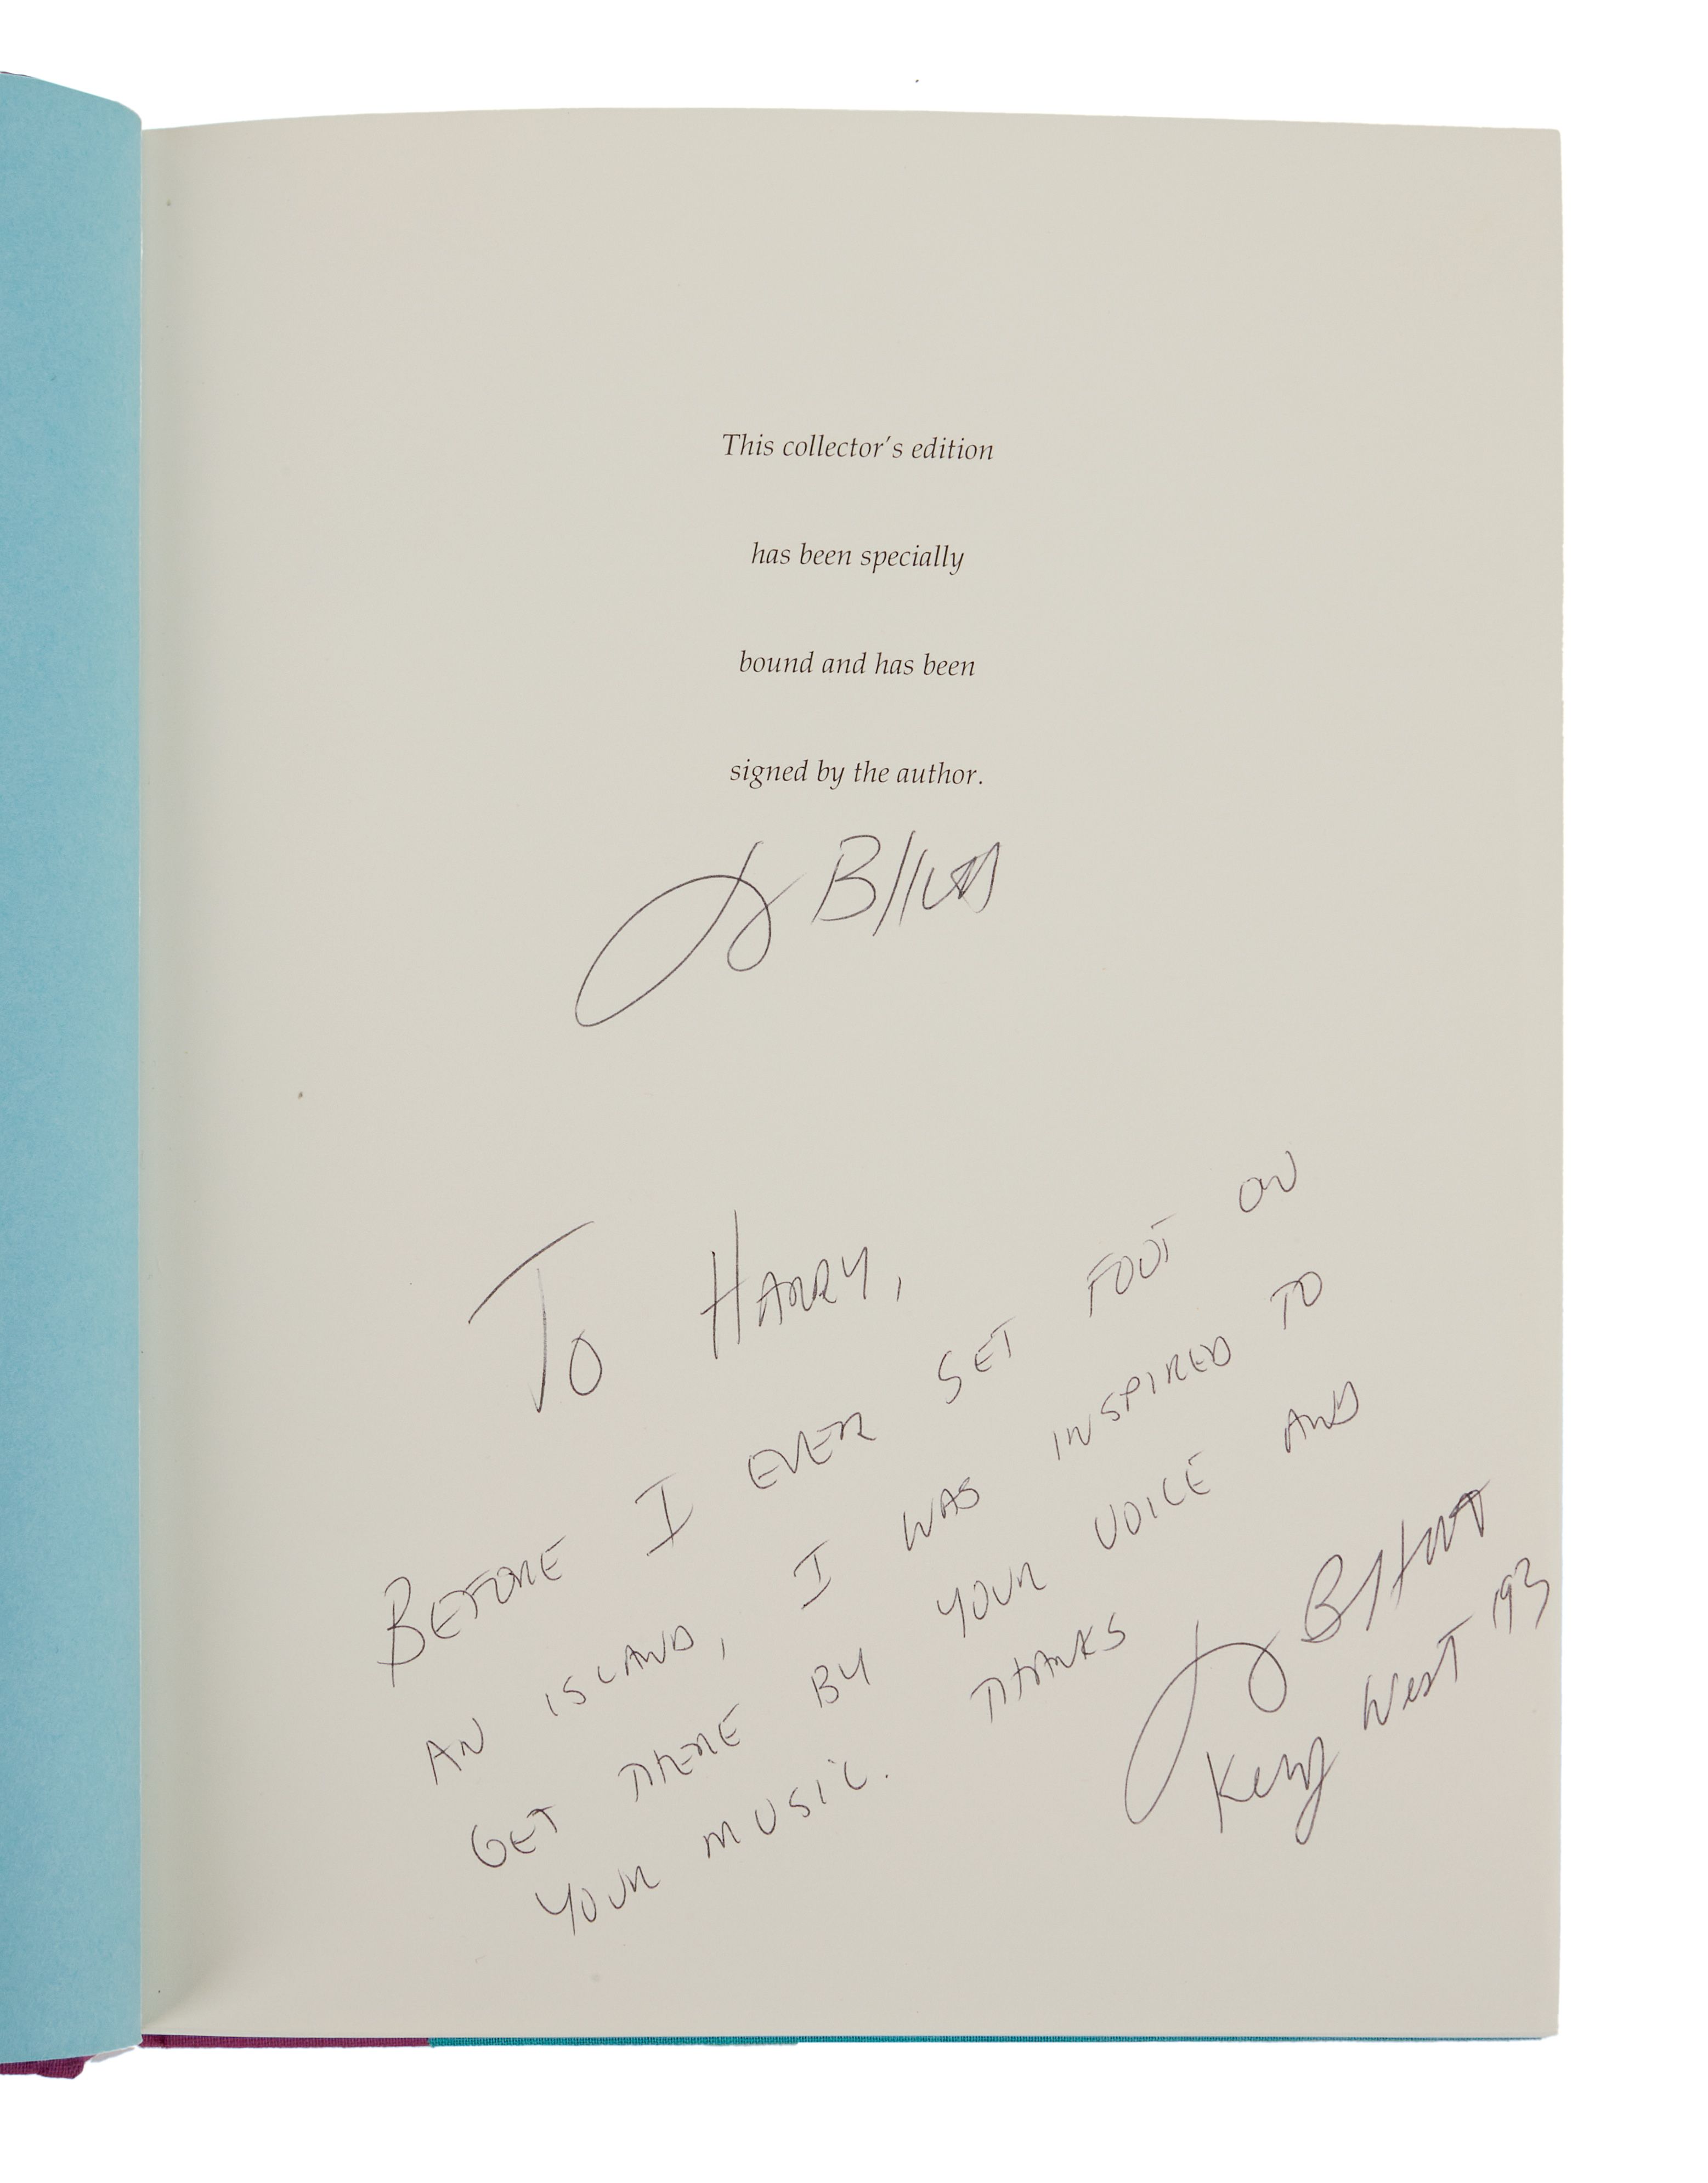 This collector's edition
has been specially
bound and has been
signed by the author.
To HARRY,
BEFORE I EVER SET FOOT ON
AN ISLAND, I WAS INSPIRED TO
GET THERE BY YOUR VOICE AND
YOUR MUSIC. THANKS
Key West '93